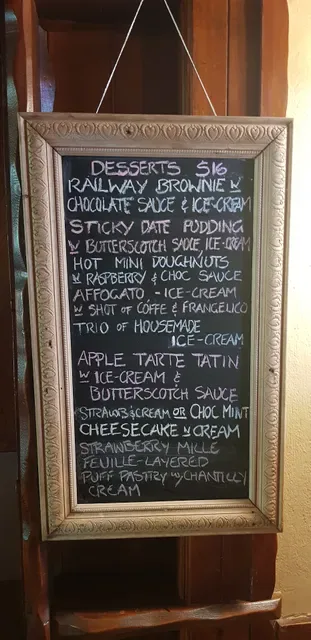 DESSERTS $16
RAILWAY BROWNIE W
CHOCOLATE SAUCE & ICE-CREAM
STICKY DATE PUDDING
W BUTTERSCOTCH SAUCE ICE-CREAM
HOT MINI DOUGHNUTS
W RASPBERRY & CHOC SAUCE
AFFOGATO - ICE-CREAM
W SHOT OF COFFE & FRANGELICO
TRIO OF HOUSEMADE
ICE-CREAM
APPLE TARTE TATIN
W ICE-CREAM &
BUTTERSCOTCH SAUCE
STRAWB & CREAM OR CHOC MINT
CHEESECAKE W CREAM
STRAWBERRY MILLE
FEUILLE-LAYERED
PUFF PASTRY W/ CHANTILLY
CREAM